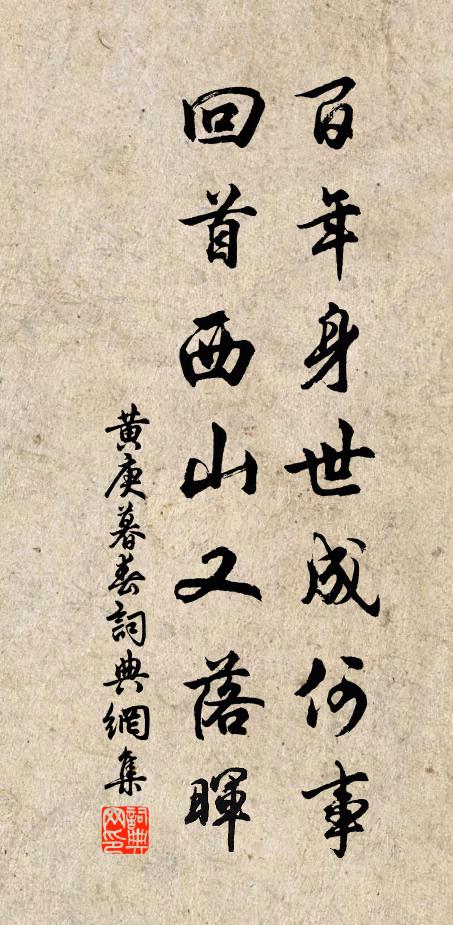 百年身世成何事
回首西山又落暉
黄庚暮春詞典網集
詞典网印